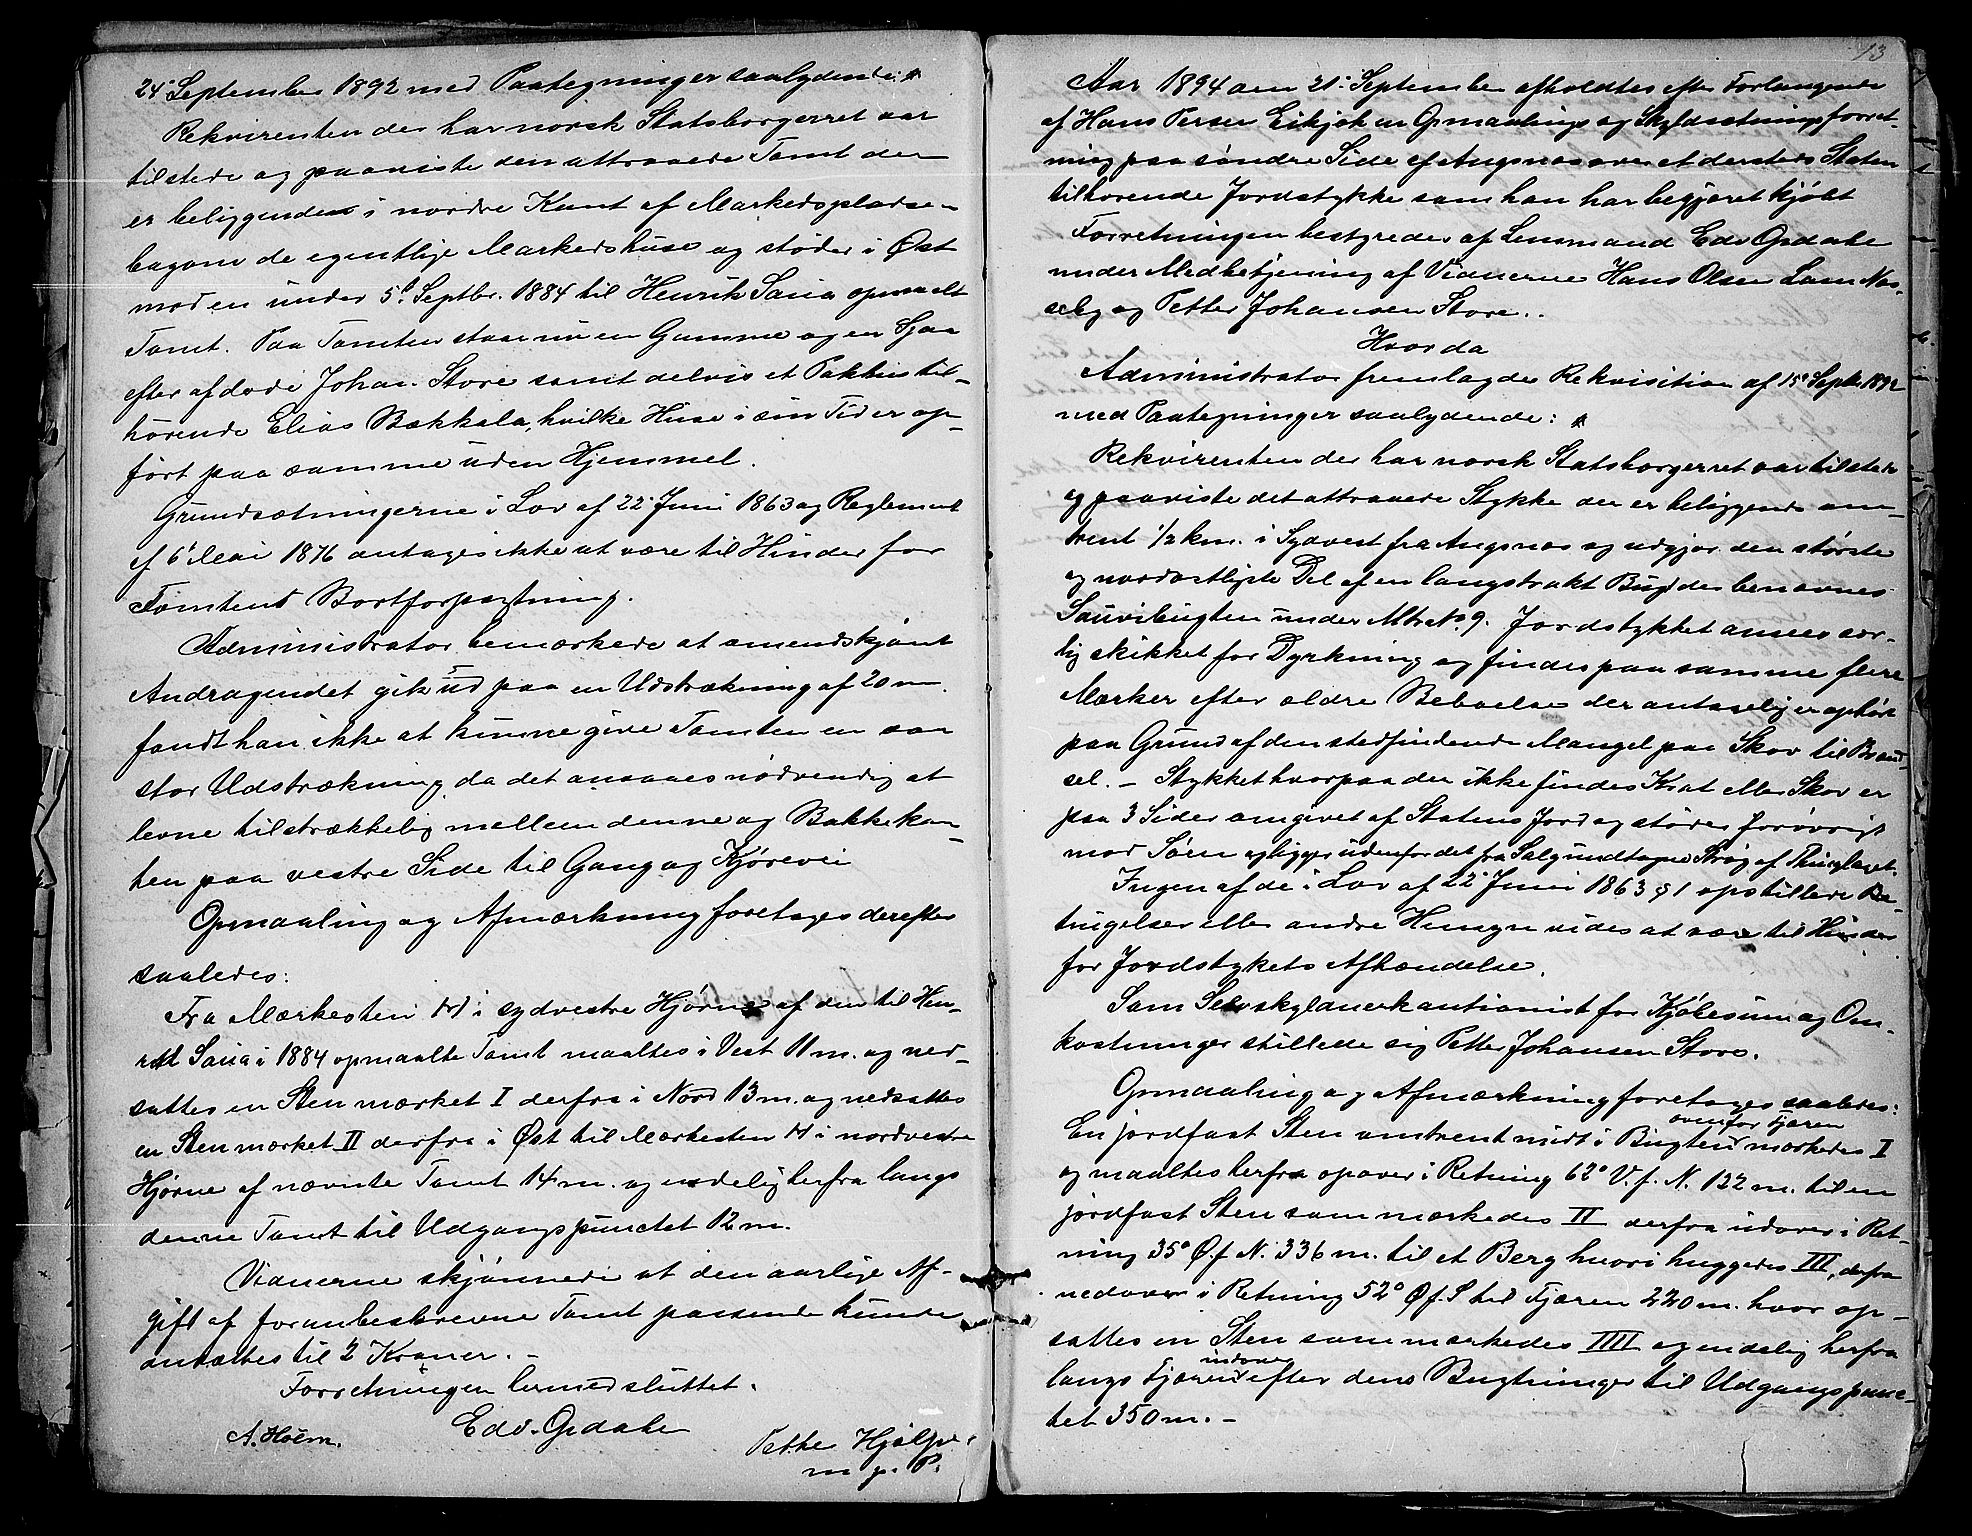 24' September 1892 med Paategninger saalydende:
Rekvirenten der har norsk Statsborgerret var
tilstede og paaviste den attraaede Tomt der
er beliggende i nordre Kant af Markedspladsen
bagom de egentlige Markedshuse og støder i Øst
mod en under 5' Septbr. 1884 til Henrik Saua opmaalt
Tomt. Paa Tomten staar nu en Gamme og en Sjaa
efter afdøde Johan Store samt delvis et Pakhus til-
hørende Elias Bækkala, hvilke Huse i sin Tid er op-
ført paa samme uden Hjemmel.
Grundsætningerne i Lov af 22' Juni 1863 og Reglement
af 6' Mai 1876 antages ikke at være til Hinder for
Tomtens Bortforpagtning.
Administrator bemærkede at omendskjønt
Andragendet gik ud paa en Udstrækning af 20 m.
fandt han ikke at kunne give Tomten en saa
stor Udstrækning, da det ansaaes nødvendig at
levne tilstrækkelig mellem denne og Bakkekan-
ten paa vestre Side til Gang og Kjørevei
Opmaaling og Afmærkning foretoges derefter
saaledes:
Fra Mærkesten H i sydvestre Hjørne af den til Hen-
rik Saua i 1884 opmaalte Tomt maaltes i Vest 11 m. og ned-
sattes en Sten mærket I derfra i Nord 13 m. og nedsattes
en Sten mærket II derfra i Øst til Mærkesten H i nordvestre
Hjørne af nævnte Tomt 14 m. og endelig herfra langs
denne Tomt til Udgangspunctet 12 m.
Vidnerne skjønnede at den aarlige Af-
gift af foranbeskrevne Tomt passende kunde
ansættes til 2 Kroner. -
Forretningen hermed sluttet.
Edv. Opdahl
A. Holm. Petter Hjalpe
m. p. P.
13
Aar 1894 den 21' September afholdtes efter Forlangende
af Hans Persen Eikjok en Opmaalings og Skyldsætningsforret-
ning paa søndre Side af Angsnæs over et dersteds Staten
tilhørende Jordstykke som han har begjæret kjøbt
Forretningen bestyredes af Lensmand Edv Opdahl
under Medbetjening af Vidnerne Hans Olsen Lam Nes-
seby og Petter Johansen Store.
Hvorda
Administrator fremlagde Rekvisition af 15' Septr 1892
med Paategninger saalydende:
Rekvirenten der har norsk Statsborgerret var tilstede
og paaviste det attraaede Stykke der er beliggende om-
trent 1/2 km. i Sydvest fra Angsnæs og udgjør den største
og nordostligste Del af en langstrakt Bugt der benævnes
Sauvibugten under Mtr No 9. Jordstykket ansees sær-
lig skikket for Dyrkning og findes paa samme flere
Mærker efter ældre Beboelse der antagelig er ophørt
paa Grund af den stedfindende Mangel paa Skov til Brænd-
sel. - Stykket hvorpaa der ikke findes Krat eller Skov er
paa 3 Sider omgivet af Statens Jord og støder forøvrigt
mod Søen og ligger udenfor det fra Salg undtagne Strøg af Thinglaget.
Ingen af de i Lov af 22' Juni 1863 § 1 opstillede Be-
tingelser eller andre Hensyn vides at være til Hinder
for Jordstykkets Afhændelse.
Som Selvskyldnerkautionist for Kjøbesum og Om-
kostninger stillede sig Petter Johansen Store.
Opmaaling og Afmærkning foretoges saaledes:
En jordfast Sten omtrent midt i Bugten ovenfor Fjæren mærkedes I
og maaltes herfra opover i Retning 62° V. f. N. 122 m. til en
jordfast Sten som mærkedes II derfra udover i Ret-
ning 35° Ø.f N. 336 m. til et Berg hvori huggedes III, derfra
nedover i Retning 52° Øf. S til Fjæren 220 m. hvor op-
sattes en Sten som mærkedes IIII og endelig herfra
langs Fjæren indover efter dens Bugtninger til Udgangspunc-
tet 350 m. -